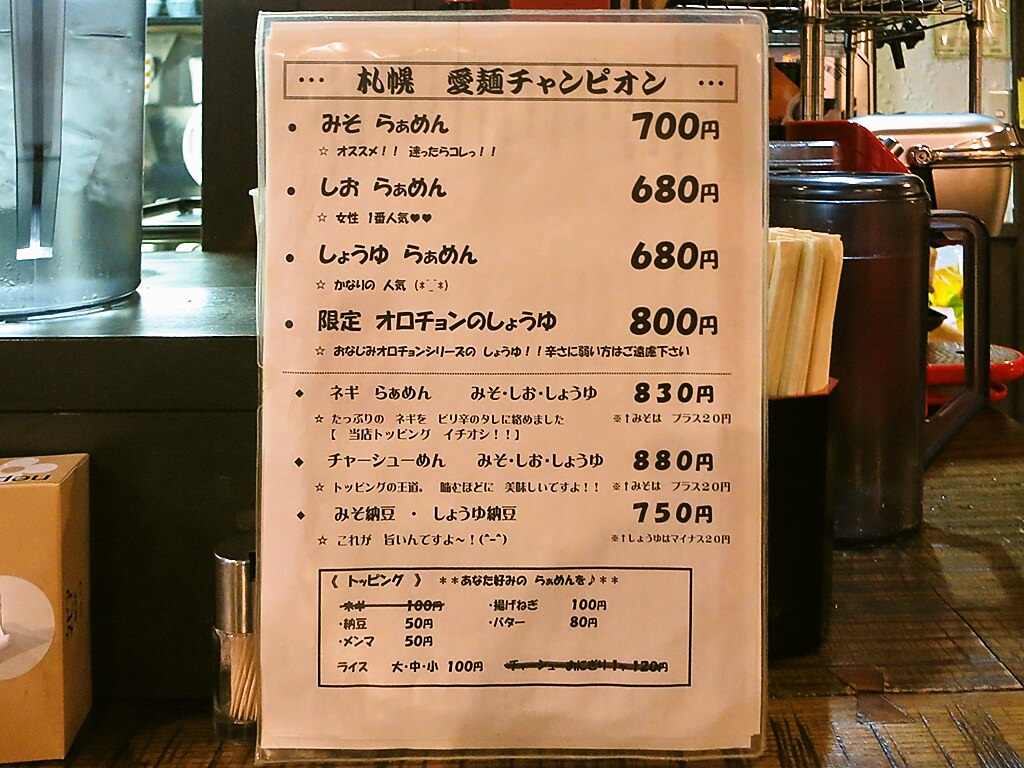 … 札幌 愛麺チャンピオン …
● みそ らぁめん 700円
☆ オススメ!! 迷ったらコレっ!!
● しお らぁめん 680円
☆ 女性 1番人気♥♥
● しょうゆ らぁめん 680円
☆ かなりの 人気 (*^_^*)
● 限定 オロチョンのしょうゆ 800円
☆ おなじみオロチョンシリーズの しょうゆ!!辛さに弱い方はご遠慮下さい
◆ ネギ らぁめん みそ・しお・しょうゆ 830円
☆ たっぷりの ネギを ピリ辛のタレに絡めました ※↑みそは プラス20円
【 当店トッピング イチオシ!!】
◆ チャーシューめん みそ・しお・しょうゆ 880円
☆ トッピングの王道。 噛むほどに 美味しいですよ!! ※↑みそは プラス20円
◆ みそ納豆 ・ しょうゆ納豆 750円
☆ これが 旨いんですよ~!(^-^) ※↑しょうゆはマイナス20円
《 トッピング 》 **あなた好みの らぁめんを♪**
・ネギ 100円 ・揚げねぎ 100円
・納豆 50円 ・バター 80円
・メンマ 50円
ライス 大・中・小 100円 チャーシューおにぎり 120円